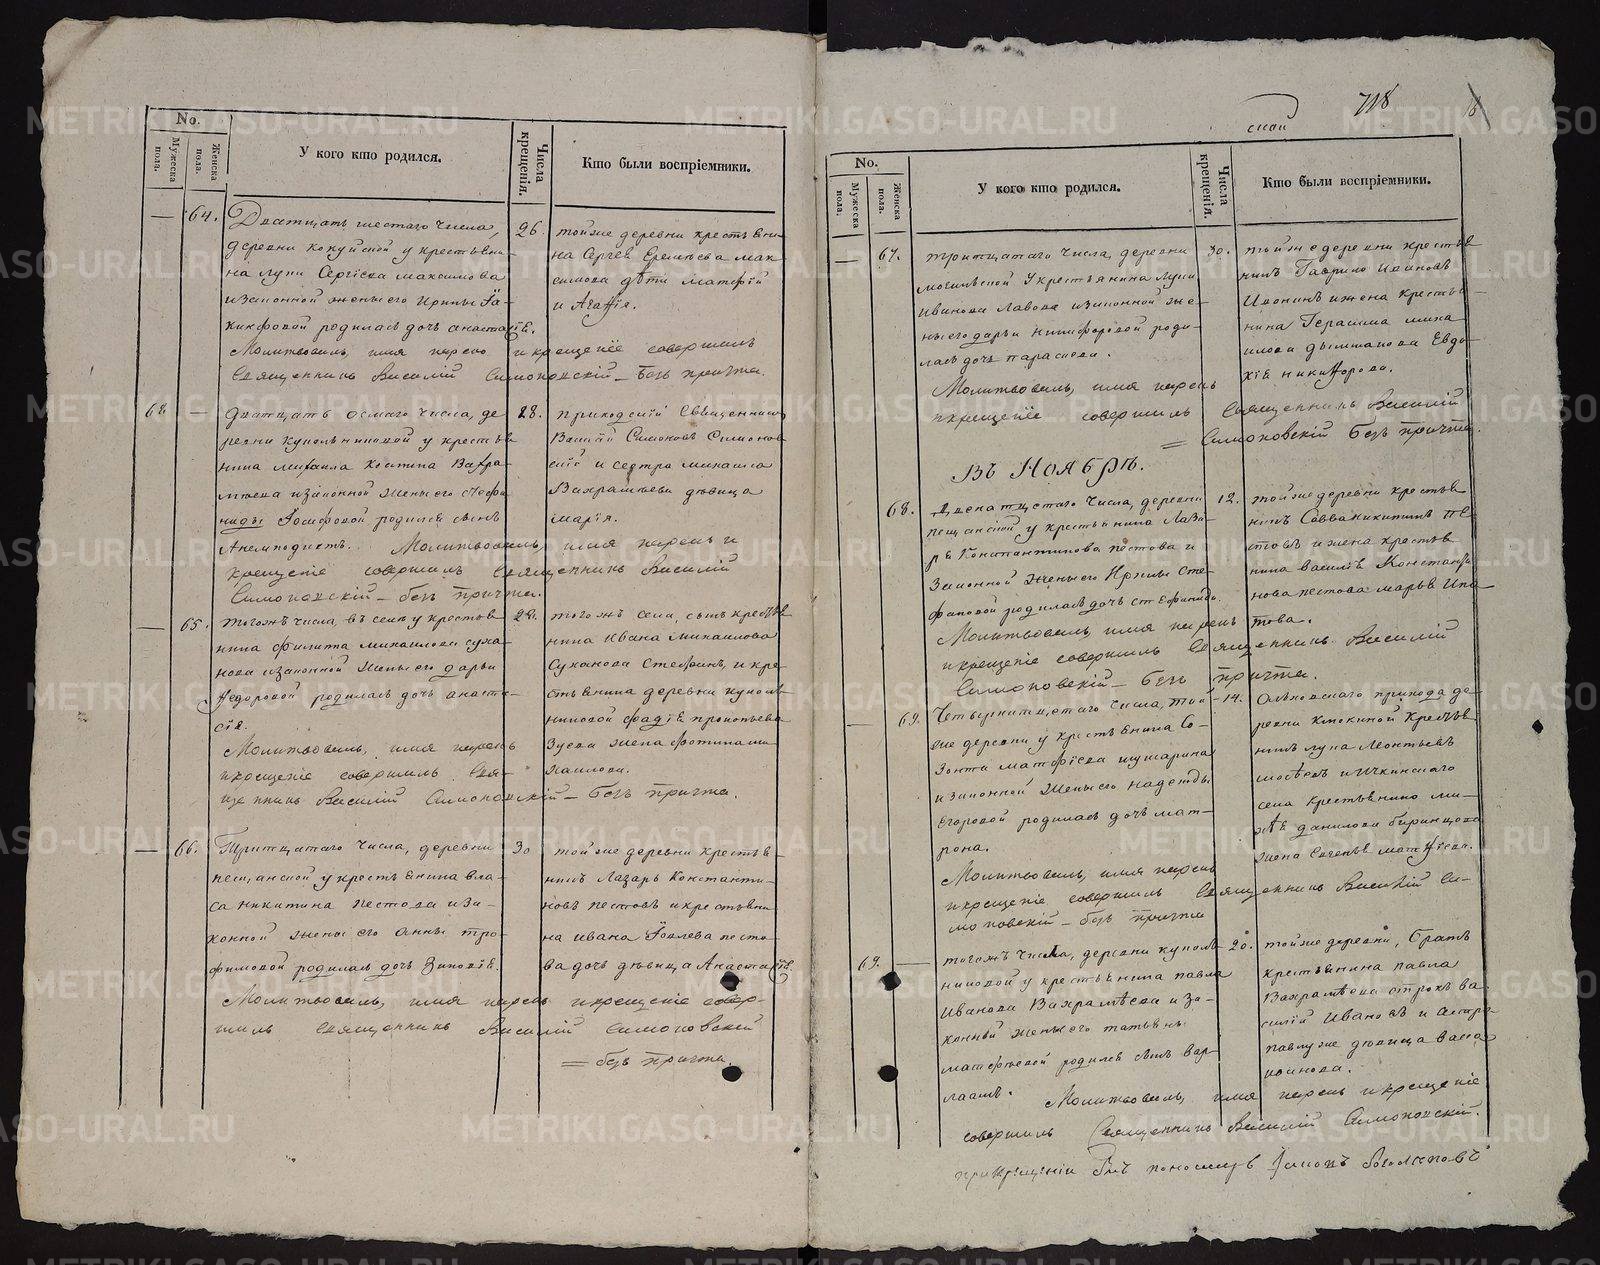 No.
Мужеска пола.
Женска пола.
У кого кто родился.
Числа крещенія.
Кто были воспріемники.
— 64.
Дватцать шестаго числа,
деревни кокуйской у крестьяни-
на лупи Сергіева максимова
изаконной жены его Ирины Іа-
кинфовой родилась дочь анастасіѣ.
Молитвовалъ, имя нарекъ и крещеніе совершилъ
Священникъ Василій Симоновскій — безъ причта.
26.
тойже деревни крестьяни-
на Сергѣѣ Еремѣева мак-
симова дѣти матфій
и Агафія.
68. —
дватцать осмаго числа, де-
ревни купольниковой у крестья-
нина михаила Костина Вахра-
мѣева изаконной жены его Стефа-
ниды Іосифовой родился сынъ
Анемподистъ. Молитвовалъ, имя нарекъ и
крещеніе совершилъ Священникъ Василій
Симоновскій — безъ причта.
28.
приходскій Священникъ
Василій Симоновъ Симонов-
скій и сестра михаила
Вахрамѣева дѣвица
марія.
— 65.
тогожъ числа, въ селѣ у крестья-
нина филипа михаилова суха-
нова изаконной жены его дарьи
федоровой родилась дочь анаста-
сіѣ.
Молитвовалъ, имя нарекъ
икрещеніе совершилъ Свя-
щенникъ Василій Симоновскій — безъ причта.
28.
тогожъ села, сынъ крестья-
нина Ивана михаилова
Суханова Стефанъ, и кре-
стьянина деревни куполь-
никовой фадѣѣ прокопьева
Зуева жена фотинаma
хаилова.
— 66.
Тритцатаго числа, деревни
песчанской у крестьянина вла-
са никитина пестова иза-
конной жены его анны тро-
фимовой родилась дочь Зиновіѣ.
Молитвовалъ, имя нарекъ икрещеніе совер-
шилъ священникъ Василій Симоновскій
= безъ причта.
30
тойже деревни крестья-
нинъ Лазарь Константи-
новъ пестовъ икрестьяни-
на ивана Іовлева песто-
ва дочь дѣвица Анастасіѣ.
718
18
No.
Мужеска пола.
Женска пола.
У кого кто родился.
Числа крещенія.
Кто были воспріемники.
— 67.
тритцатаго числа, деревни
могилевской Укрестьянина лупи
иванова лавова изаконной же-
ны его дарьи никифоровой роди-
лась дочь параскева.
Молитвовалъ, имя нарекъ
икрещеніе совершилъ Священникъ Василій
= Симоновскій безъ причта.
30.
тойже деревни крестья-
нинъ Гаврило Ивановъ
Ивонинъ ижена крестья-
нина Герасима миха
илова дымшакова Евдо-
кіѣ никифорова.
Въ Ноябрѣ.
68.
Двенатцетаго числа, деревни
песчанской у крестьянина лаза-
рѣ Константинова пестова и
Законной жены его Ирины Сте-
фановой родилась дочь стефанида.
Молитвовалъ, имя нарекъ
икрещеніе совершилъ Священникъ Василій
Симоновскій — безъ причта.
12.
тойже деревни крестья-
нинъ Савва никитинъ пе-
стовъ ижена крестья-
нина василѣѣ Константи-
нова пестова марья Ипа-
това.
— 69.
Четырнатцетаго числа, той-
же деревни у крестьянина Со-
зонта матфіева шушарина
изаконной жены его надежды
Егоровой родилась дочь мат-
рона.
Молитвовалъ, имя нарекъ
икрещеніе совершилъ Священникъ Василій Си-
моновскій — безъ причта
14.
Ольховскаго прихода де-
ревни клюкиной крестья-
нинъ лупа леонтьевъ
ичкинскаго
села крестьянина ми-
хѣѣ данилова бирюцова
жена Евгенья матфіева.
69. —
тогожъ числа, деревни куполь-
никовой у крестьянина павла
Иванова Вахрамѣева и за-
конной жены его татьяны
матфѣевой родился сынъ вар-
лаамъ. Молитвовалъ, имя нарекъ икрещеніе
совершилъ Священникъ Василій Симоновскій.
20.
тойже деревни, братъ
крестьянина павла
Вахрамѣева отрокъ ва-
силій Ивановъ и сестра
павлуже дѣвица васса
иванова.